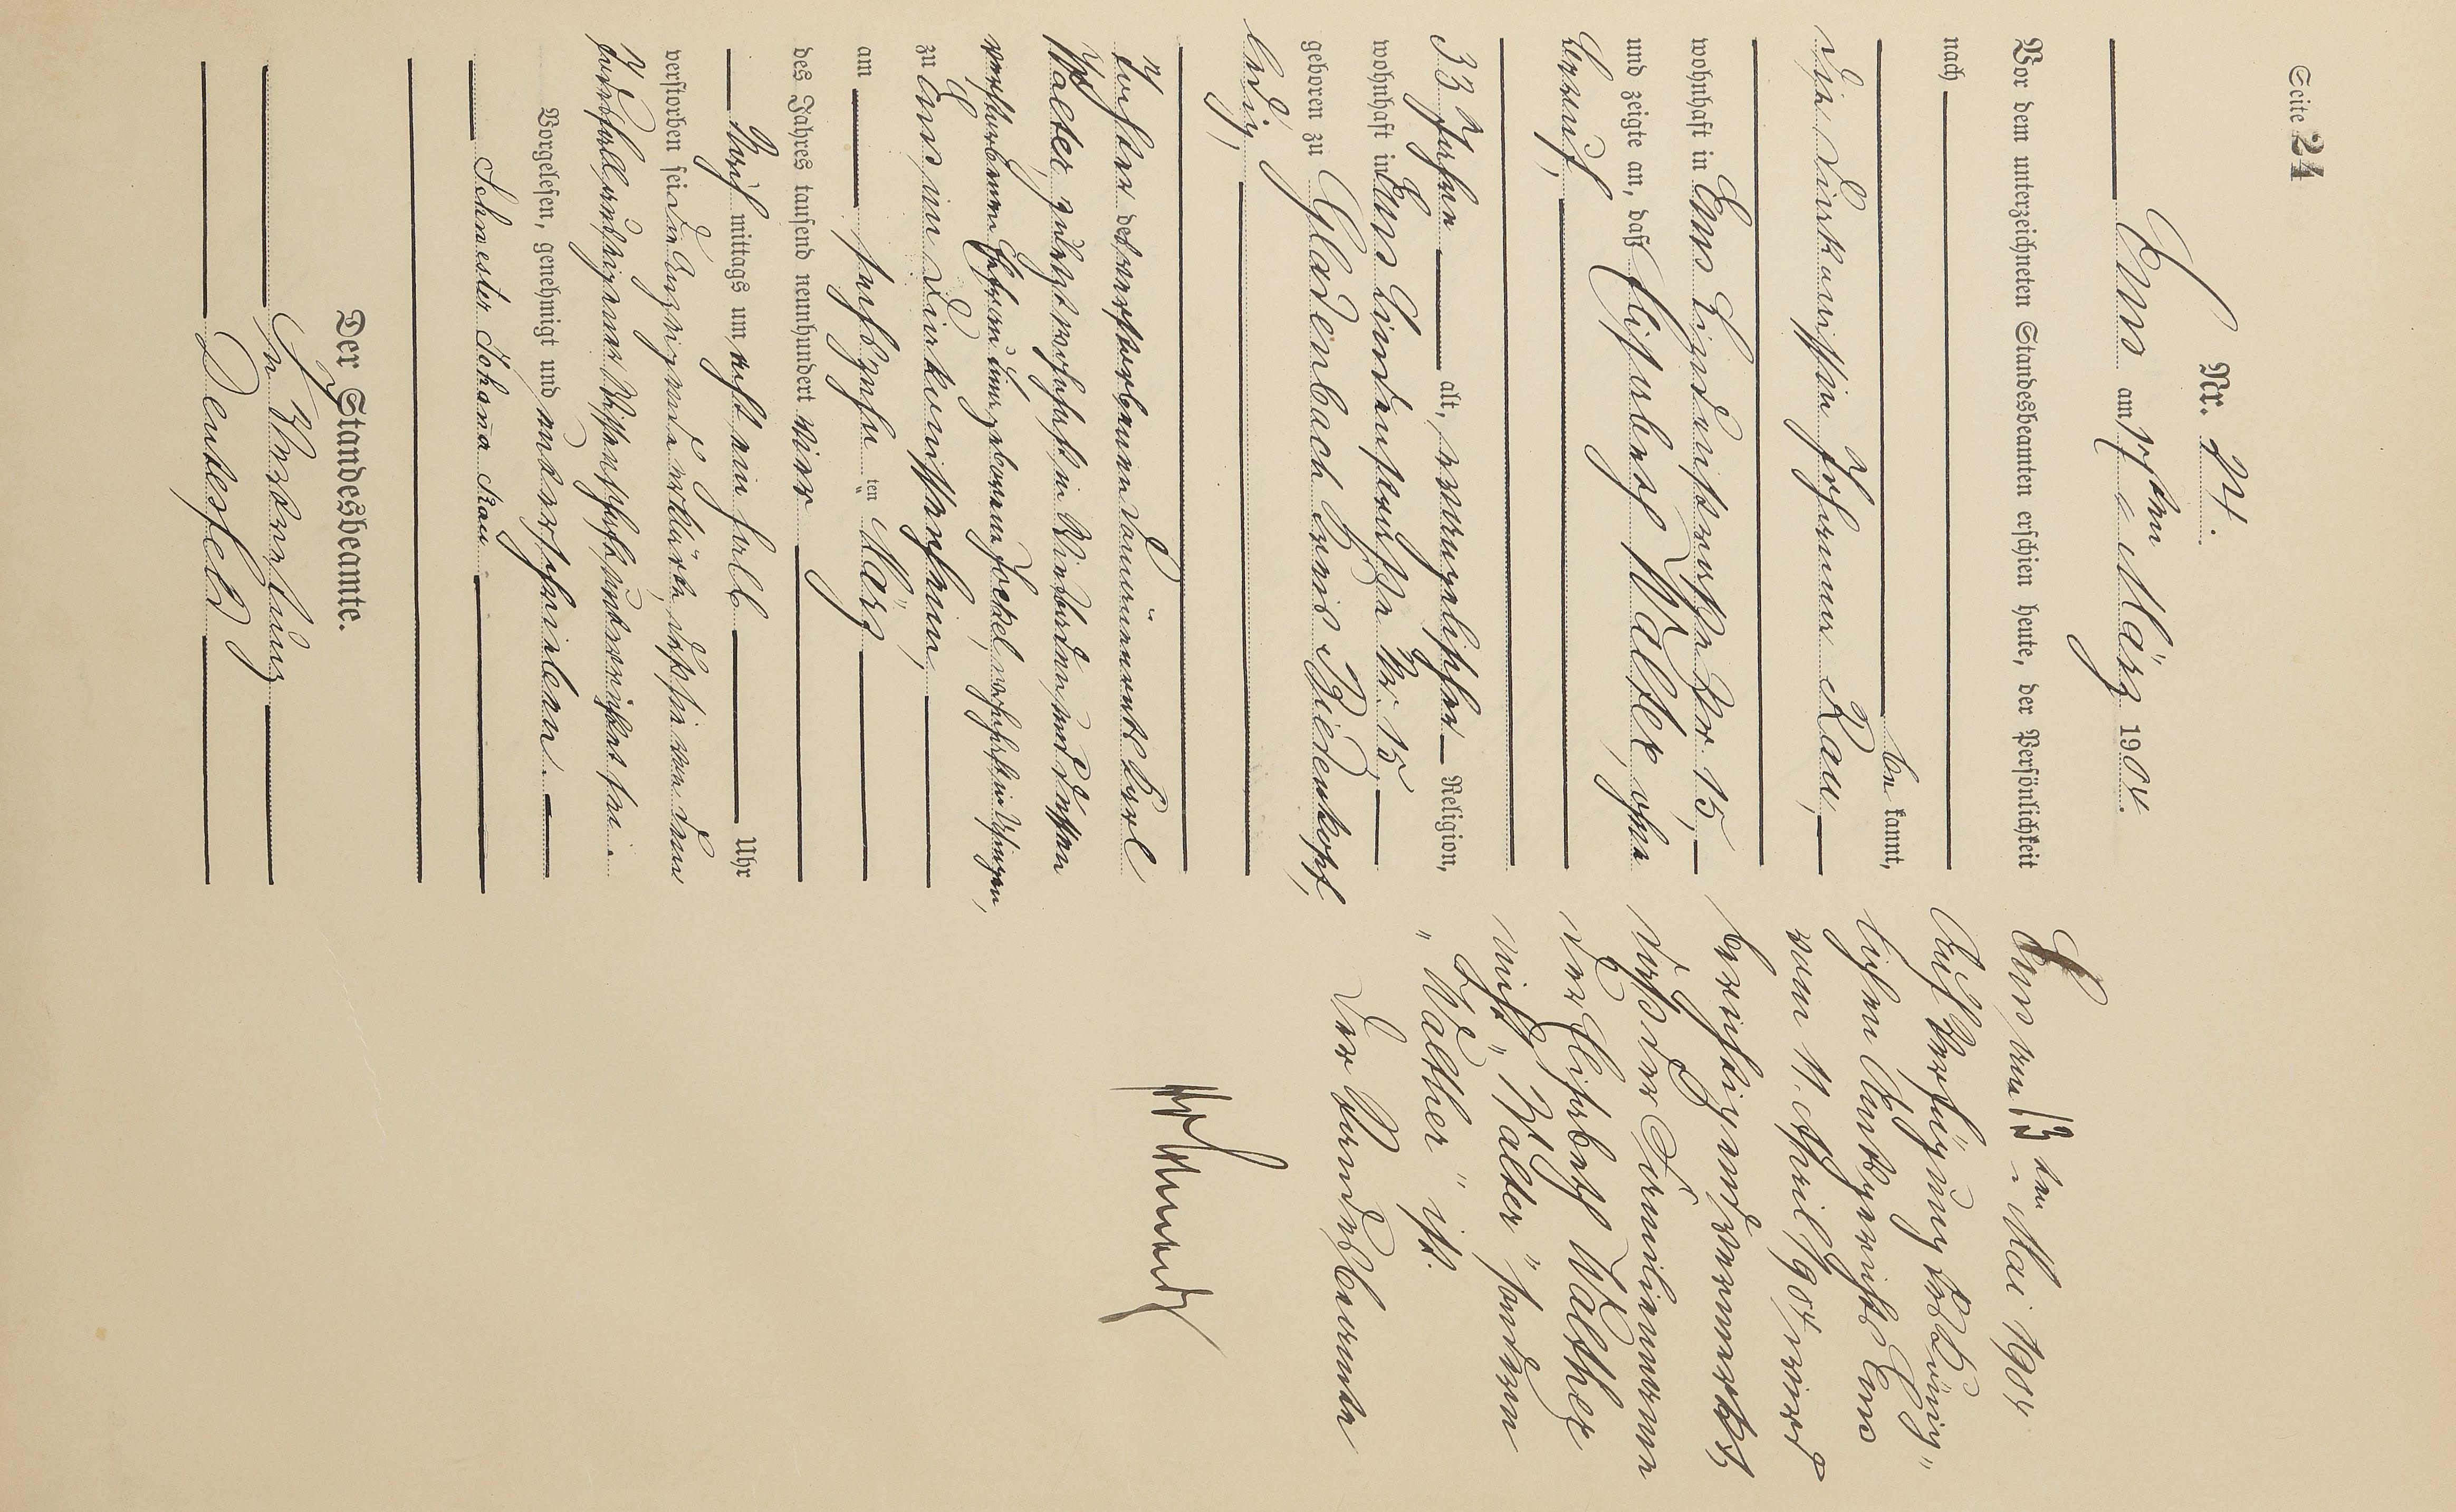 Seite 24
Nr. 24.
Ems am 18ten März 1904.
Vor dem unterzeichneten Standesbeamten erschien heute, der Persönlichkeit
nach
bekannt,
die Diakonissin Johanna Rau,
wohnhaft in Ems Lindenstraße Nr. 15,
und zeigte an, daß Elisabeth Walter, ohne
Beruf,
33 Jahre alt, evangelischer Religion,
wohnhaft in Ems Lindenstraße Nr. 15,
geboren zu Gladenbach Kreis Biedenkopf,
ledig,
Tochter des verstorbenen Domänenrath Karl
Walter, zuletzt wohnhaft in Wiesbaden, und dessen
verstorbenen Ehefrau geborene Jockel, wohnhaft in Usingen,
zu Ems im Diakonissenheim,
am sechszehnten März
des Jahres tausend neunhundert vier
Nachmittags um acht ein halb Uhr
verstorben sei, die Anzeigende erklärte, daß sie von dem
Todesfall aus eigener Wissenschaft unterrichtet sei.
Vorgelesen, genehmigt und unterschrieben.
Schwester Johana Rau
Der Standesbeamte.
In Vertretung
Deutesfeld
Ems am 13ten Mai 1904
Auf Verfügung des König-
lichen Amtsgerichts Ems
vom 11. April 1904 wird
berichtigend vermerkt,
daß der Familienname
der Elisabeth Walther
nicht "Walter" sondern
"Walther" ist.
Der Standesbeamte